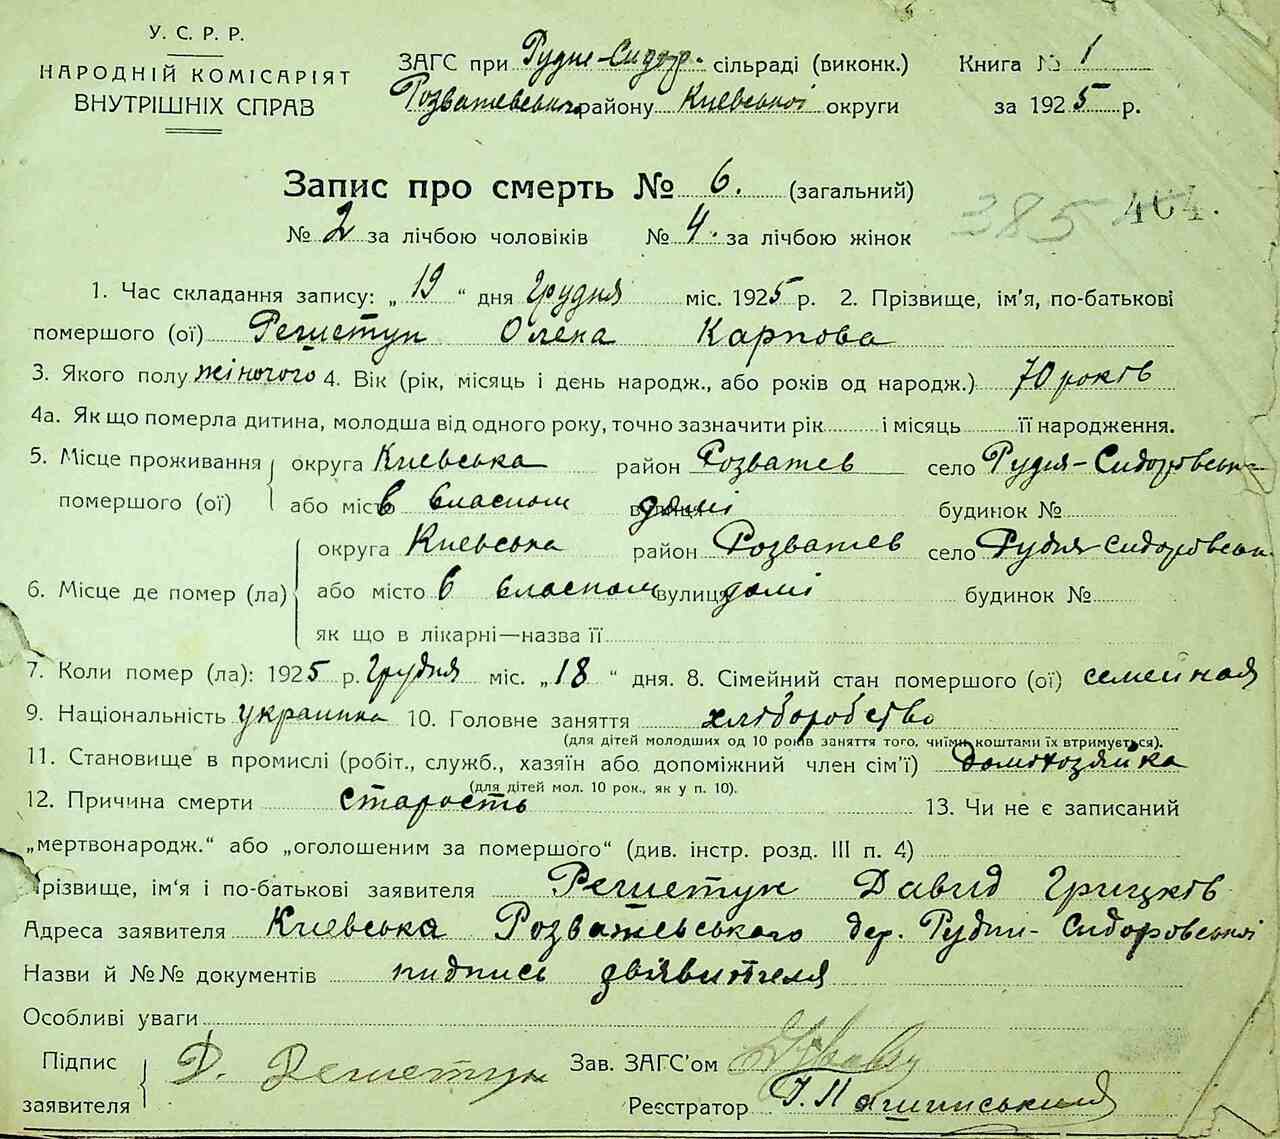 У. С. Р. Р.
НАРОДНІЙ КОМІСАРІЯТ
ВНУТРІШНІХ СПРАВ
ЗАГС при Рудне-Сидор. сільраді (виконк.)
Розватевського району Киевської округи
Книга № 1
за 1925 р.
Запис про смерть № 6. (загальний)
№ 2 за лічбою чоловіків № 4. за лічбою жінок
385 464.
1. Час складання запису: „ 19 “ дня Грудня міс. 1925 р. 2. Прізвище, ім'я, по-батькові
помершого (ої) Решетук Олена Карпова
3. Якого полу жіночого 4. Вік (рік, місяць і день народж., або років од народж.) 70 років
4а. Як що померла дитина, молодша від одного року, точно зазначити рік і місяць її народження.
5. Місце проживання помершого (ої) округа Киевська район Розватев село Рудня-Сидоровськ
або місто в власном вулиця домі будинок №
6. Місце де помер (ла) округа Киевська район Розватев село Рудня-Сидоровськ
або місто в власном вулиця домі будинок №
як що в лікарні—назва її
7. Коли помер (ла): 1925 р. Грудня міс. „18 “ дня. 8. Сімейний стан помершого (ої) семейная
9. Національність украинка 10. Головне заняття хліборобство
(для дітей молодших од 10 років заняття того, чиїми коштами їх втримується).
11. Становище в промислі (робіт., служб., хазяїн або допоміжний член сім'ї) домохозяйка
(для дітей мол. 10 рок., як у п. 10).
12. Причина смерти старость 13. Чи не є записаний
„мертвонародж.“ або „оголошеним за помершого“ (див. інстр. розд. III п. 4)
Прізвище, ім'я і по-батькові заявителя Решетук Давид Грицків
Адреса заявителя Киевська Розватевського дер. Рудни-Сидоровської
Назви й №№ документів пидпись заявителя
Особливі уваги
Підпис заявителя Д. Решетук Зав. ЗАГС'ом
Реєстратор